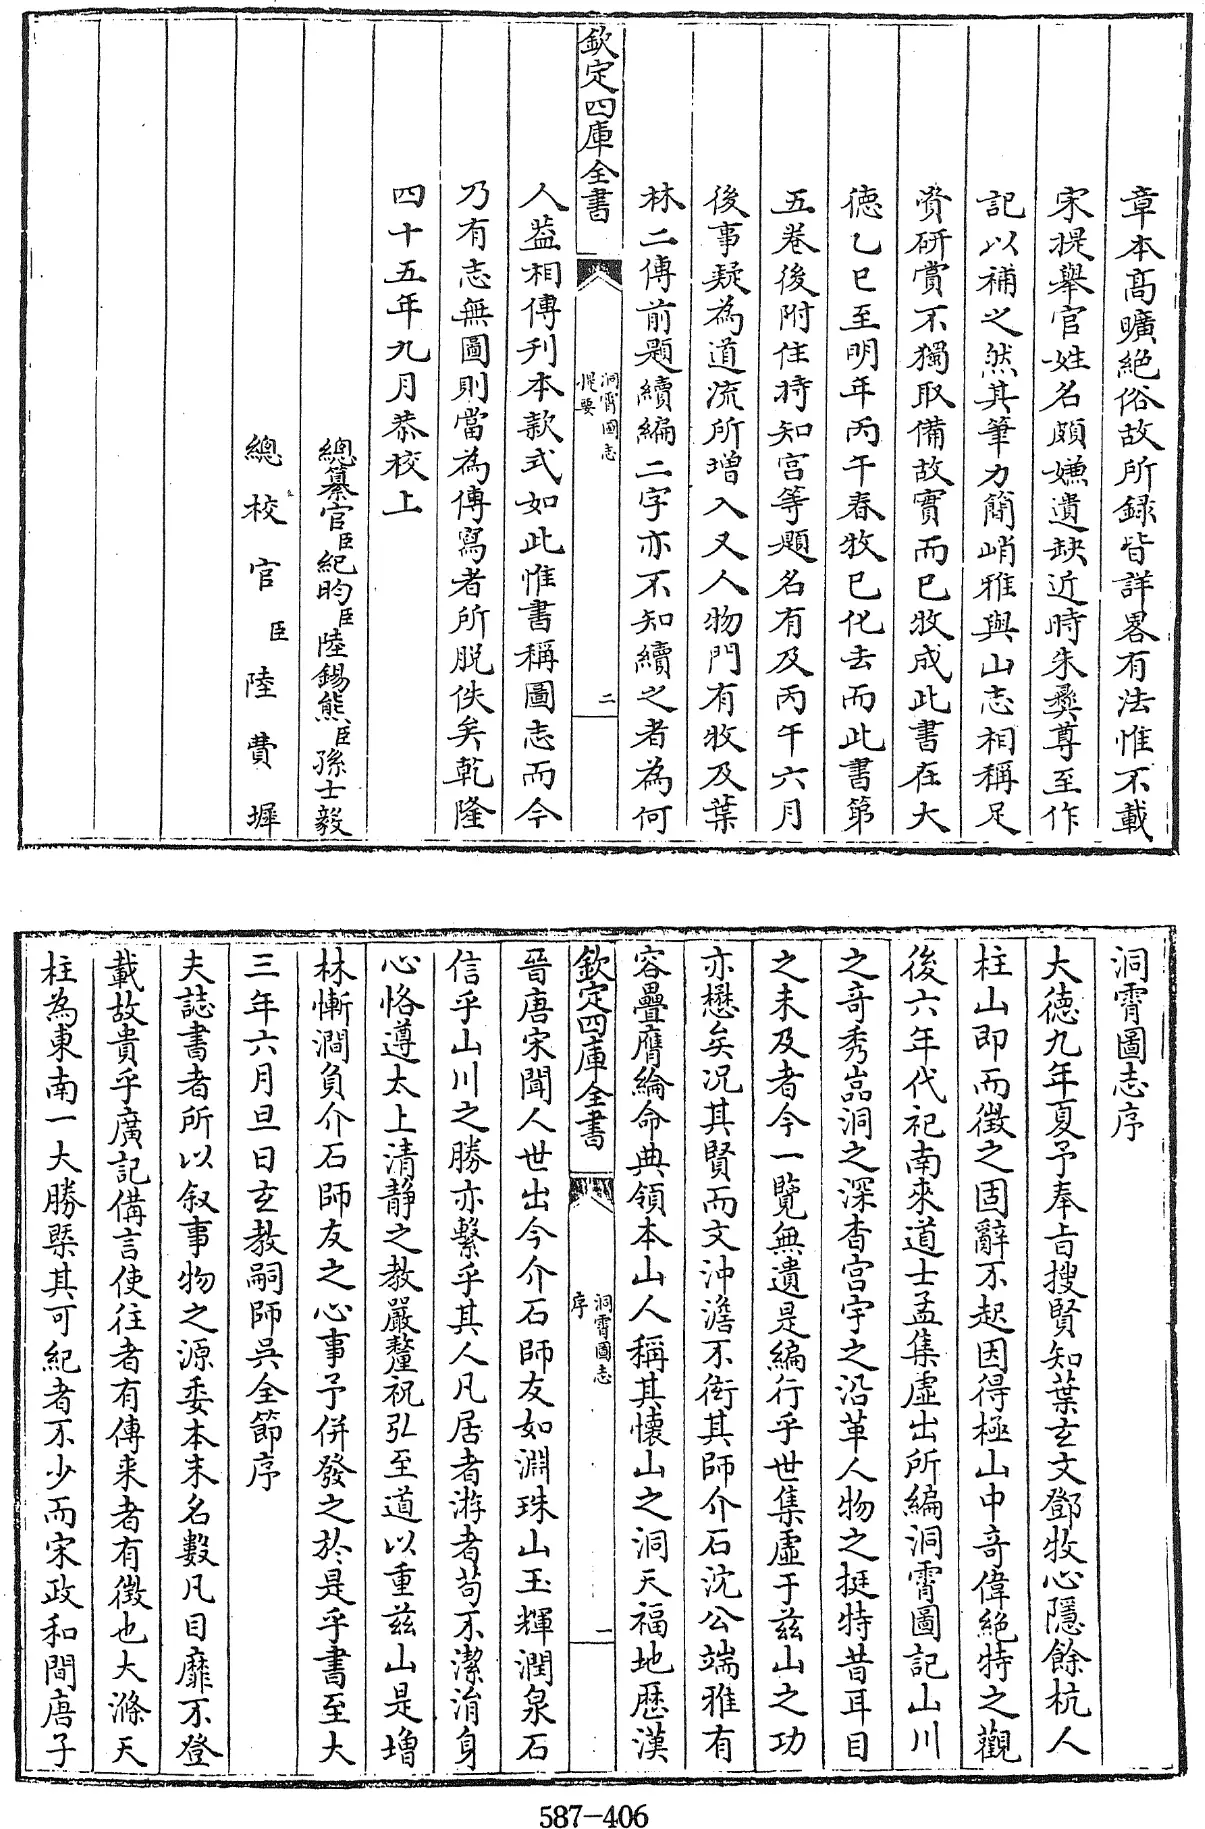 章本高曠絶俗故所録皆詳畧有法惟不載
宋提舉官姓名頗嫌遺缺近時朱彝尊至作
記以補之然其筆力簡峭雅與山志相稱足
資研賞不獨取備故實而已牧成此書在大
德乙巳至明年丙午春牧已化去而此書第
五卷後附住持知宫等題名有及丙午六月
後事疑為道流所增入又人物門有牧及葉
林二傳前題續編二字亦不知續之者為何
欽定四庫全書
洞霄圖志
提要
二
人葢相傳刋本款式如此惟書稱圖志而今
乃有志無圖則當為傳寫者所脱佚矣乾隆
四十五年九月恭校上
總纂官臣紀昀臣陸錫熊臣孫士毅
總校官臣陸費墀
洞霄圖志序
大德九年夏予奉㫖搜賢知葉玄文鄧牧心隱餘杭人
柱山即而徵之固辭不起因得極山中竒偉絶特之觀
後六年代祀南來道士孟集虛出所編洞霄圖記山川
之竒秀嵓洞之深杳宫宇之沿革人物之挺特昔耳目
之未及者今一覽無遺是編行乎世集虛于兹山之功
亦懋矣况其賢而文沖澹不衒其師介石沈公端雅有
容疊膺綸命典領本山人稱其懷山之洞天福地歴漢
欽定四庫全書
洞霄圖志
序
一
晉唐宋聞人世出今介石師友如淵珠山玉輝潤泉石
信乎山川之勝亦繫乎其人凡居者游者苟不潔淯身
心恪遵太上清靜之教嚴釐祝弘至道以重兹山是增
林慚澗負介石師友之心事予併發之於是乎書至大
三年六月旦日玄教嗣師吳全節序
夫誌書者所以叙事物之源委本末名數凡目靡不登
載故貴乎廣記備言使往者有傳来者有徵也大滌天
柱為東南一大勝槩其可紀者不少而宋政和間唐子